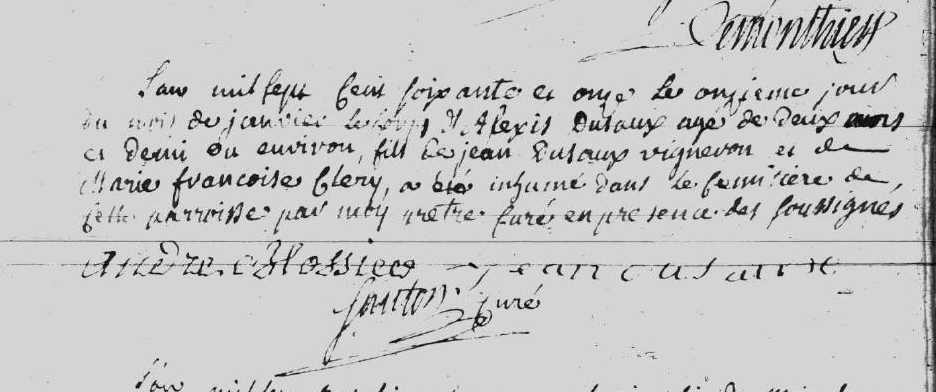 Lemonthier
L'an mil sept cent soixante et onze le onzieme jour
du mois de janvier le corps d'Alexis Dusaux age de deux ans
et demi ou environ, fils de jean Dusaux vigneron et de
Marie francoise Clery, a été inhumé dans le cemitiere de
cette parroisse par moy pretre curé en presence des soussignés
andre jean dusaux
curé
L'an mil